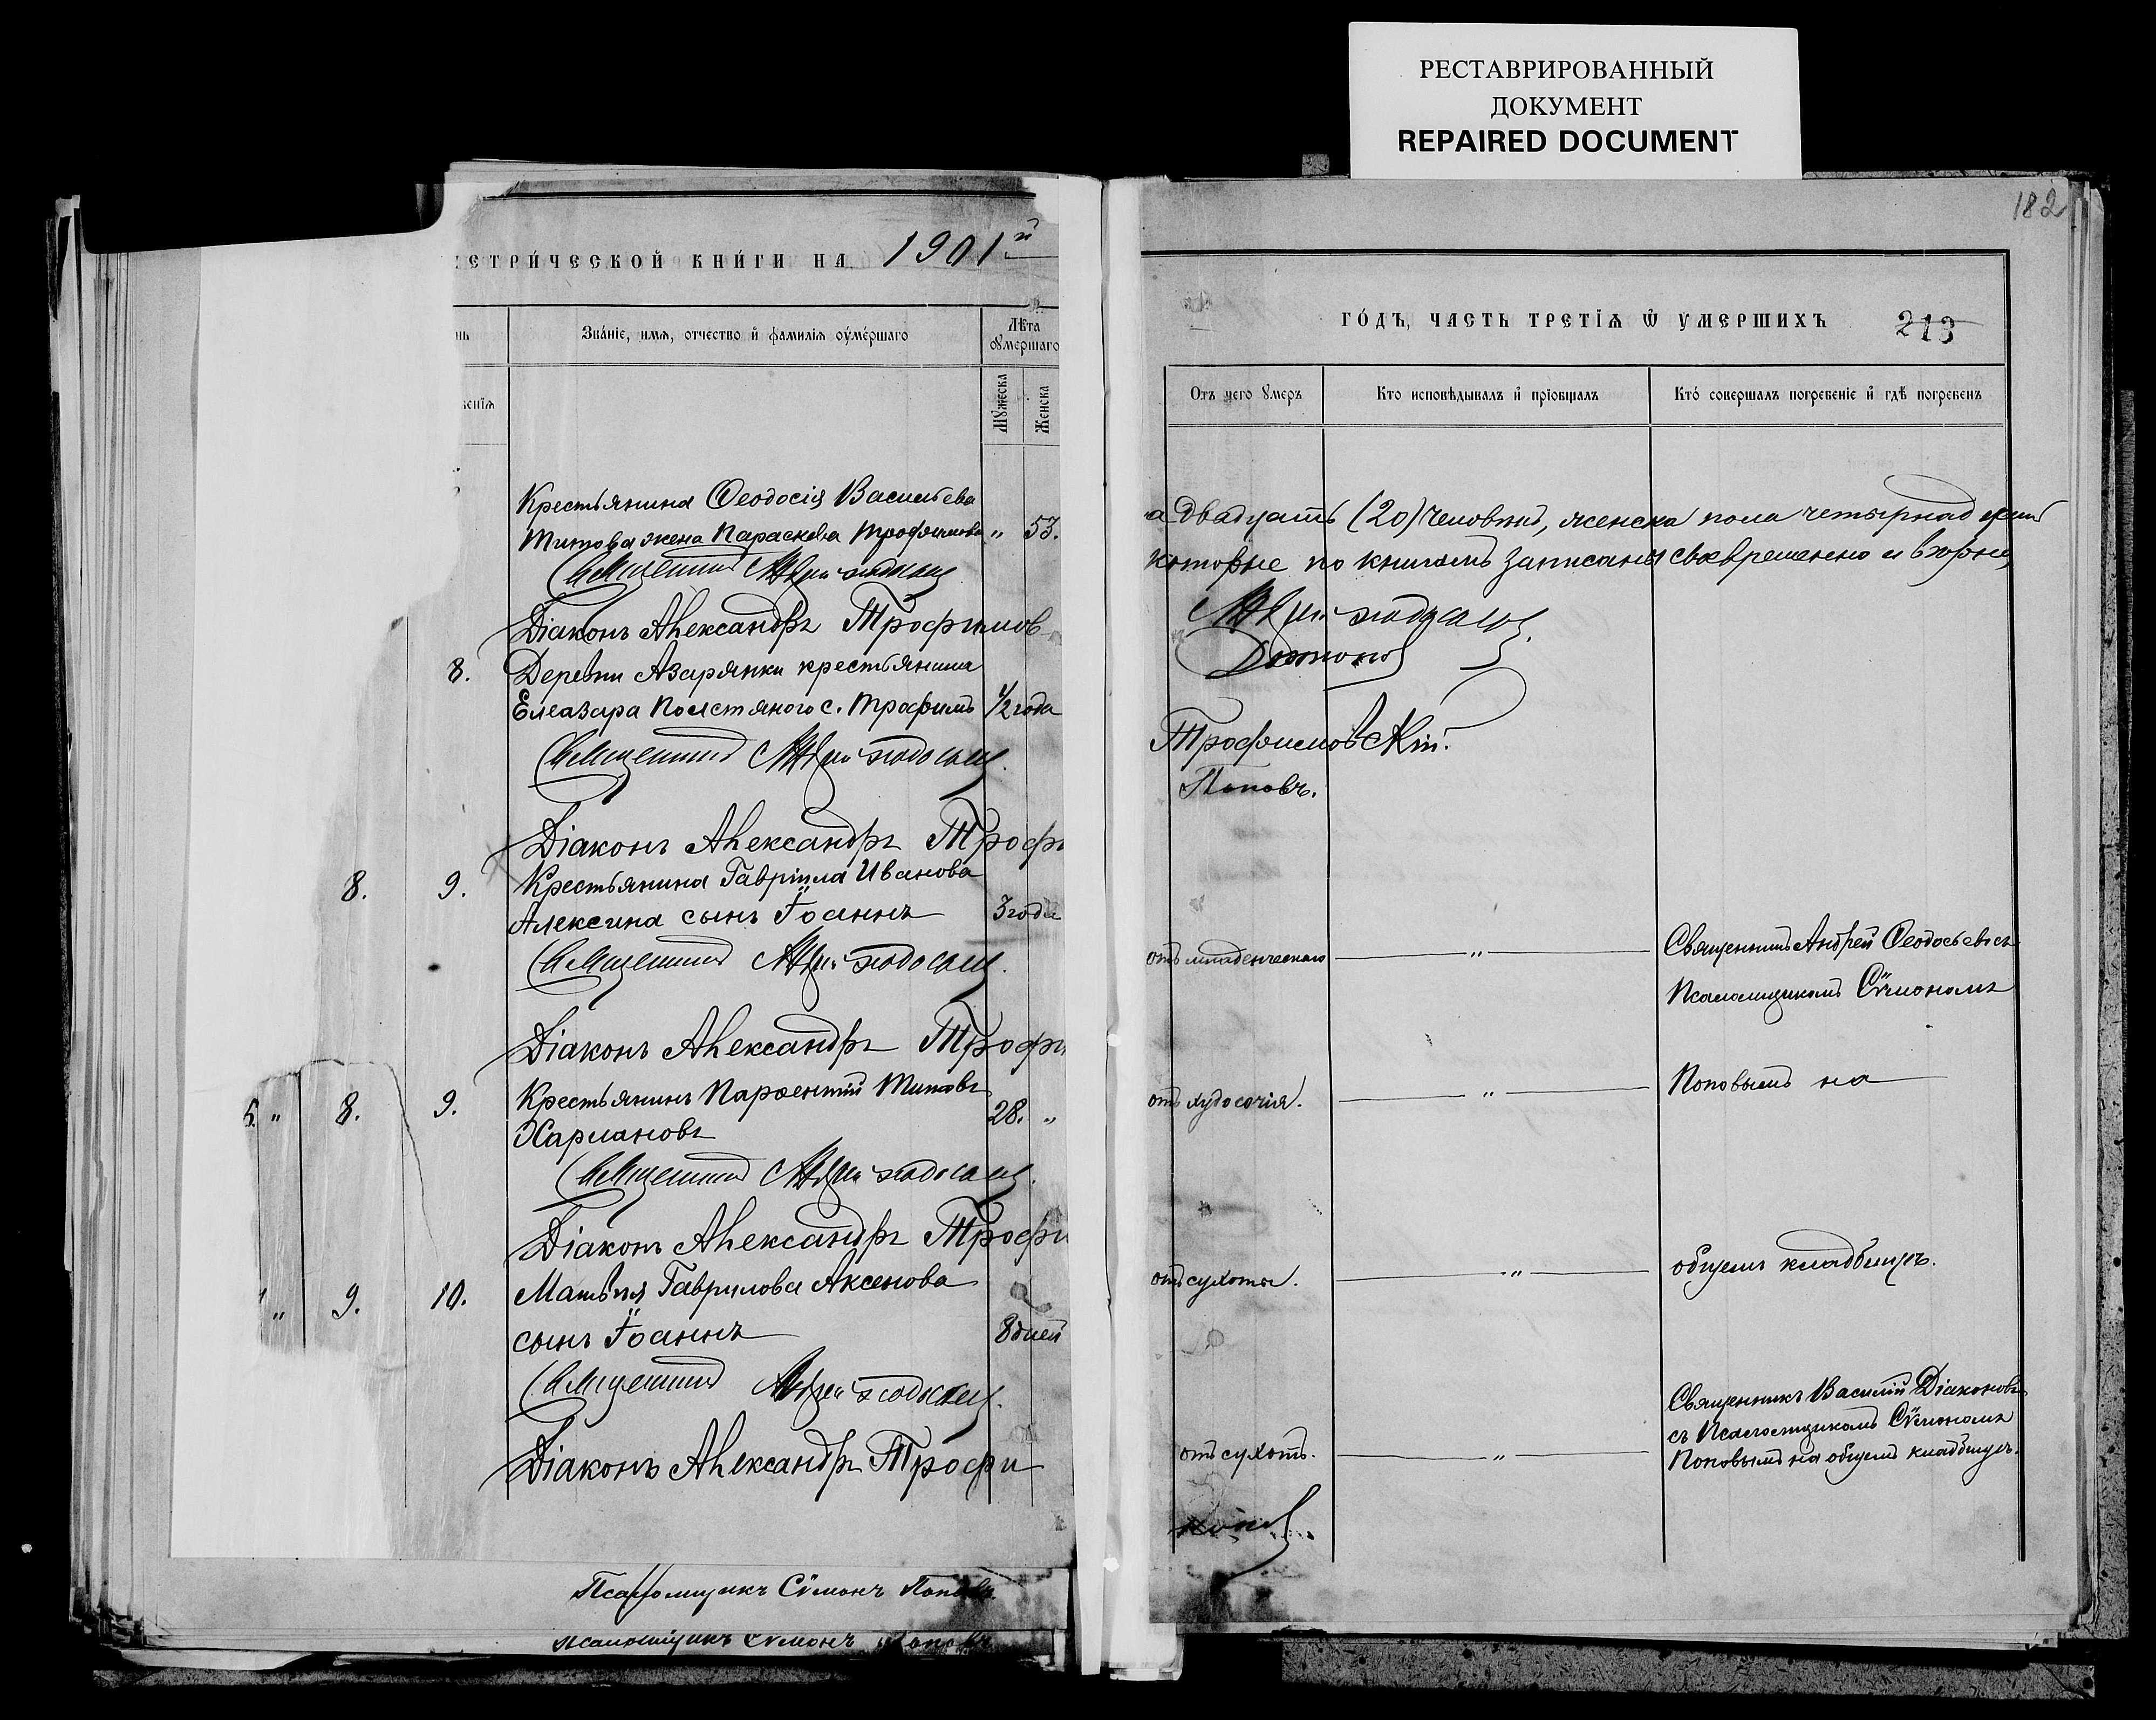 РЕСТАВРИРОВАННЫЙ
ДОКУМЕНТ
REPAIRED DOCUMENT
ЕТРИ́ЧЕСКОЙ КНИ́ГИ НА 1901й
нь
Зва́нїе, имѧ, отчество и҆ фамилїѧ оу҆ме́ршаго
Лѣта
оумершаго
енїѧ
Мужеска
Женска
Крестьянина Ѳеодосія Васильева
Титова жена Параскева Трофимова " 53.
Діаконъ Александръ Трофимов
8. Деревни Азарянки крестьянина
Елеазара Полстяного с. Трофимъ 1/2 года
Діаконъ Александръ Трофи
8. 9. Крестьянина Гавріила Иванова
Алексина сынъ Іоаннъ 3 года
Діаконъ Александръ Трофи
" 8. 9. Крестьянинъ Парѳентій Титовъ
Харлановъ 28. "
Діаконъ Александръ Трофи
" 9. 10. Матвѣя Гаврилова Аксенова
сынъ Іоаннъ 8 дней
Діаконъ Александръ Трофи
Псаломщикъ Сѵмонъ Поповъ.
Псаломщикъ Сѵмонъ Поповъ
182
ГО́ДЪ, ЧАСТЬ ТРЕТЇѦ Ѿ УМЕРШИХЪ 213
Отъ чего умеръ
Кто исповѣдывалъ и҆ прїобщалъ
Кто́ совершалъ погребенїе и҆ гдѣ погребенъ
а двадцать (20) человѣкъ, женска пола четырнадцать
которые по книгамъ записаны своевременно и вѣрно,
Трофимовскій.
Поповъ.
отъ младенческаго " Священникъ Андрей Ѳеодосьевъ съ
Псаломщикомъ Сѵмономъ
отъ худосочія. " Поповымъ на
отъ сухоты. " общемъ кладбищѣ.
отъ сухотъ. " Священникъ Василій Діаконовъ
съ Псаломщикомъ Сѵмономъ
Поповымъ на общемъ кладбищѣ.